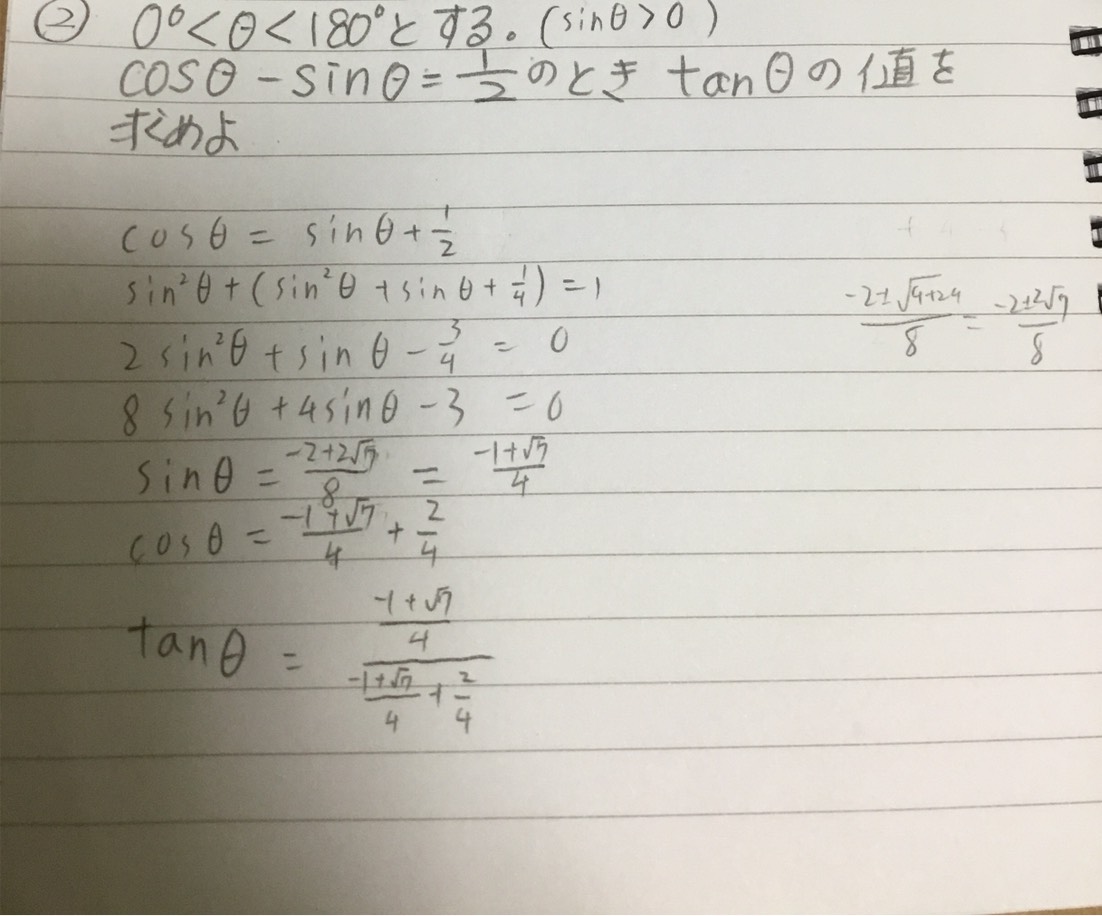 ② 0°<θ<180°とする。(sinθ>0)
cosθ-sinθ=1/2のとき tanθの値を
求めよ
cosθ = sinθ+1/2
sin²θ+(sin²θ+sinθ+1/4)=1
-2±√4+24/8 = -2±2√7/8
2sin²θ+sinθ-3/4 = 0
8sin²θ+4sinθ-3 =0
sinθ = -2+2√7/8 = -1+√7/4
cosθ = -1+√7/4 + 2/4
tanθ = (-1+√7/4)/(-1+√7/4 + 2/4)